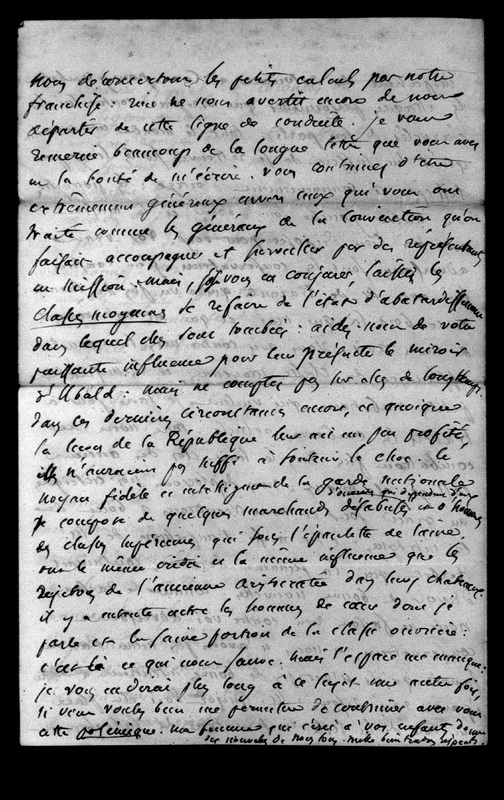 nous déconcertons les petits calculs par notre
franchise : rien ne nous avertit encore de nous
départir de cette ligne de conduite. je vous
remercie beaucoup de la longue lettre que vous avez
eu la bonté de m'écrire. vous continuez d'être
extrêmement généreux envers ceux qui vous ont
traité comme les généraux de la Convention qu'on
faisait accompagner et surveiller par des représentants
en mission. mais, je vous en conjure, laissez les
classes moyennes se refaire de l'état d'abatardissement
dans lequel elles sont tombées : aidez-nous de votre
puissante influence pour leur présenter le miroir
d'Ubald : mais ne comptez pas sur elles de longtemps.
dans les dernières circonstances encore, et quoique
la leçon de la République leur ait un peu profité,
ils n'auraient pas suffi à soutenir le choc. le
noyau fidèle et intelligent de la garde nationale
se compose de quelques marchands désabusés et d'hommes
d'ouvriers qui dépendent d'eux
des classes inférieures qui sous l'épaulette de laine,
ont le même crédit et la même influence que les
rejetons de l'ancienne aristocratie dans leurs châteaux.
il y a entente entre les hommes de cœur dont je
parle et la saine portion de la classe ouvrière :
c'est là ce qui nous sauve. mais l'espace me manque :
je vous en dirai plus long à ce sujet une autre fois,
si vous voulez bien me permettre de continuer avec vous
cette polémique. ma femme qui écrit à vos enfants donne
des nouvelles de nous tous. mille bien tendres respects.